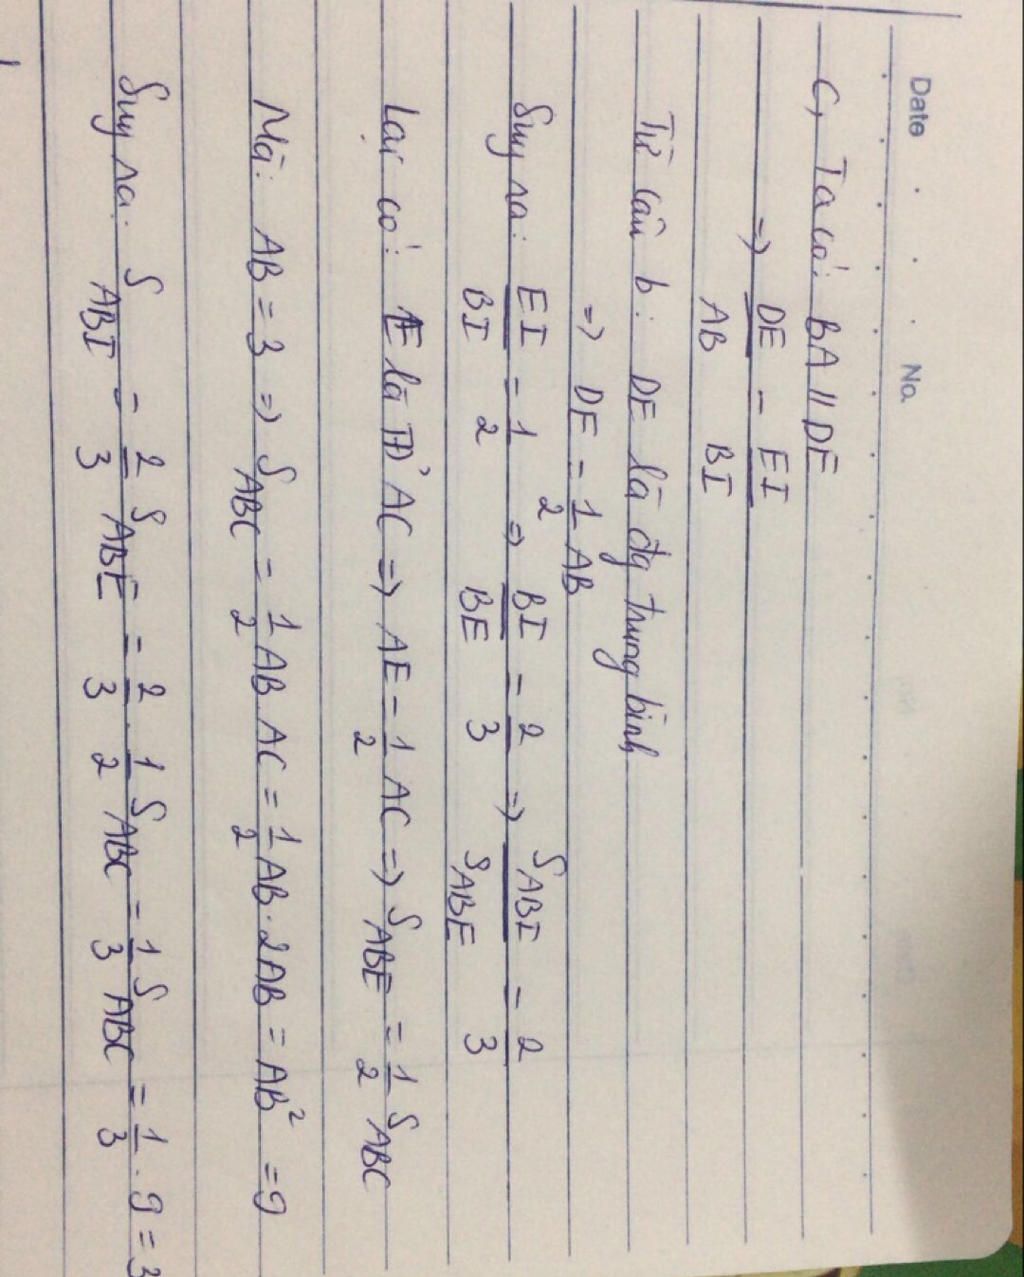 Date . . . No.
C, Ta có: BA // DE
=> DE/AB = EI/BI
Từ câu b: DE là đg trung bình
=> DE = 1/2 AB
Suy ra: EI/BI = 1/2 => BI/BE = 2/3 => S ABI/S ABE = 2/3
Lại có: E là TĐ AC => AE = 1/2 AC => S ABE = 1/2 S ABC
Mà: AB = 3 => S ABC = 1/2 AB AC = 1/2 AB . 2AB = AB² = 9
Suy ra: S ABI = 2/3 S ABE = 2/3 . 1/2 S ABC = 1/3 S ABC = 1/3 . 9 = 3